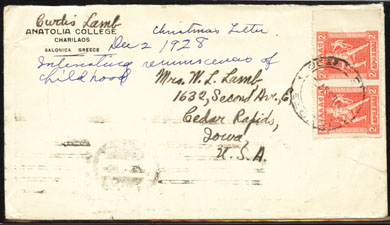 Curtis Lamb
ANATOLIA COLLEGE
CHARILAOS
SALONICA GREECE
Christmas Letter
Dec 2 1928
Interesting reminiscences of
childhood
Mrs. W. L. Lamb
1632, Second Ave, E
Cedar Rapids,
Iowa
U. S. A.
2 2
ΕΛΛΑΣ
2 2
ΕΛΛΑΣ